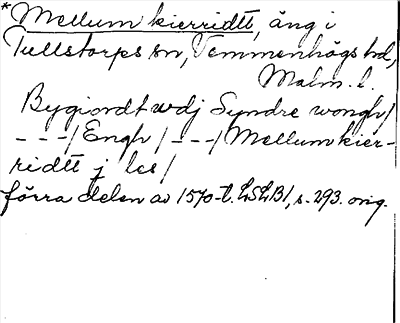 *Mellum kierridtt, äng i
Tullstorps sn, Vemmenhögs hd,
Malm. l.
Bygiordt wdj Syndre wongh/
---/Engh/---/Mellum kier-
ridtt j les/
förra delen av 1570-t. LSLB1, s. 293. orig.